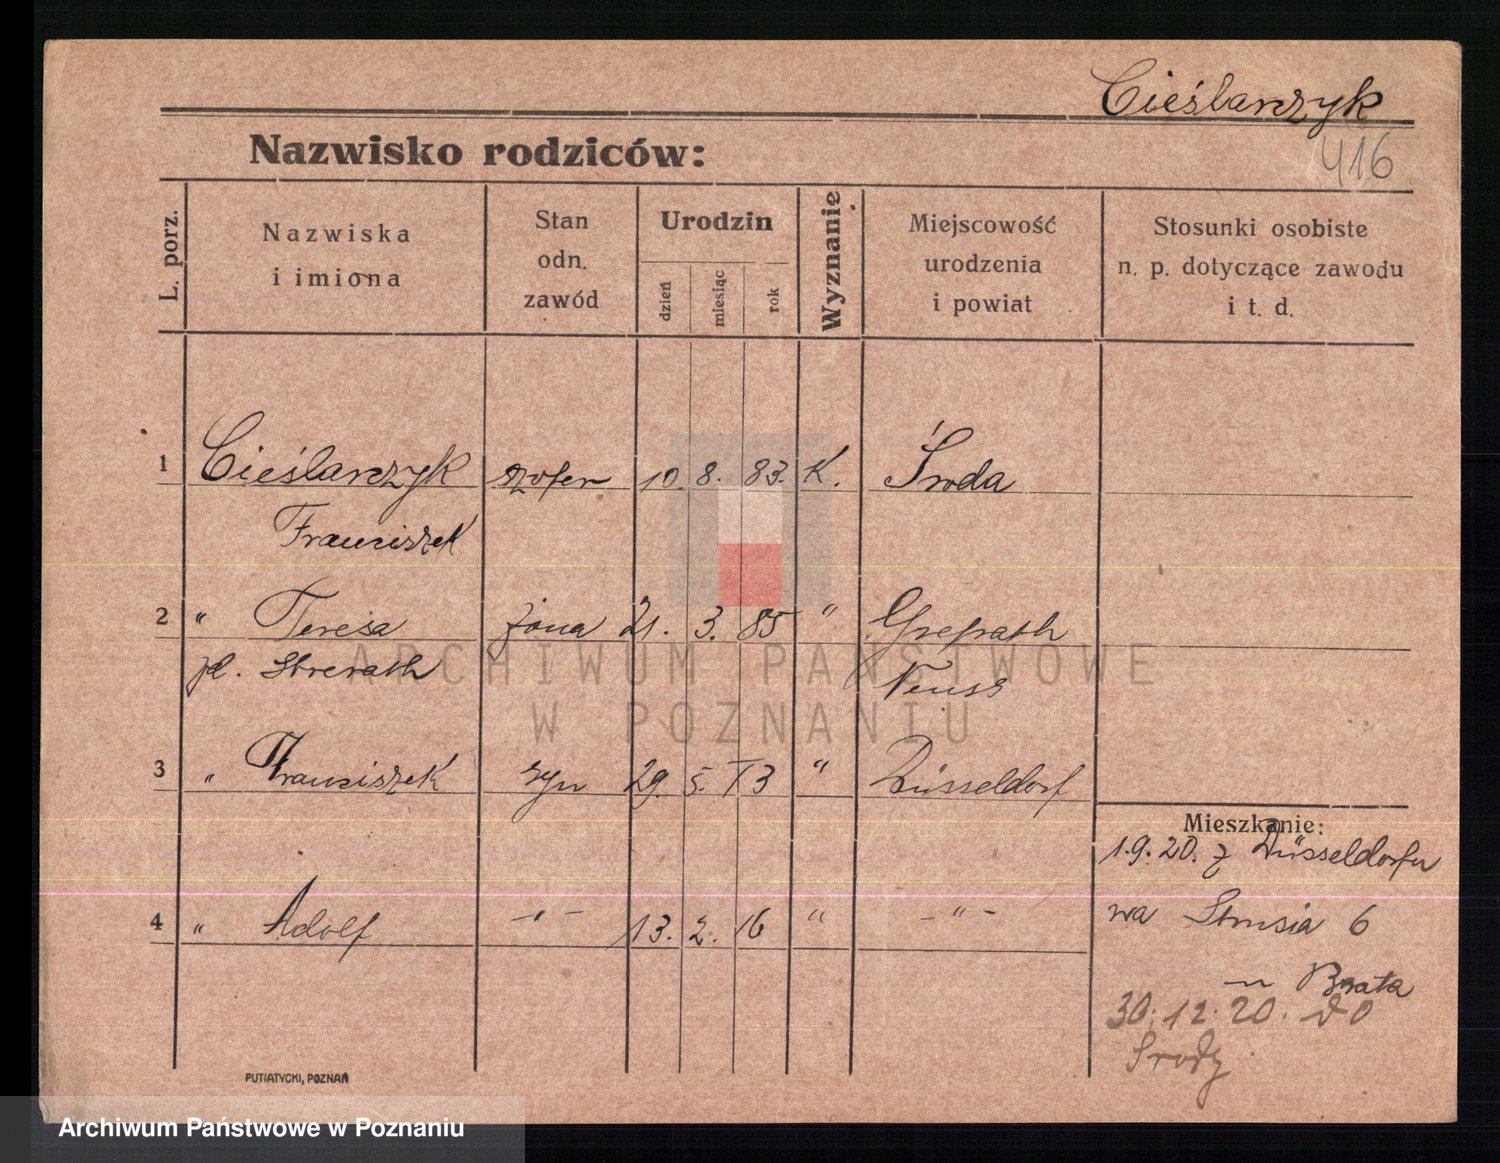 Cieślarczyk
416
Nazwisko rodziców:
L. porz.
Nazwiska
i imiona
Stan
odn.
zawód
Urodzin
dzień
miesiąc
rok
Wyznanie
Miejscowość
urodzenia
i powiat
Stosunki osobiste
n. p. dotyczące zawodu
i t. d.
1 Cieślarczyk szofer 10. 8. 83. K. Środa
Franciszek
2 " Teresa żona 21. 3. 85 " Grefrath
Neuss
3 " Franciszek syn 29. 5. 13 " Düsseldorf
4 " Adolf -"- 13. 2. 16 " -"-
Mieszkanie:
1.9.20. z Düsseldorfu
na Strusia 6
u Brata
30.12.20. do
Środy
PUTIATYCKI, POZNAŃ
ARCHIWUM PAŃSTWOWE
W POZNANIU
Archiwum Państwowe w Poznaniu